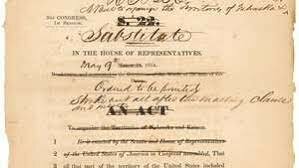 A Bill to organize the Territory of Nebraska &
33d CONGRESS,
1st Session.
S. 22.
Substitute
IN THE HOUSE OF REPRESENTATIVES.
May 9th 1854.
Ordered to be printed
Strike out all after the enacting clause
AN ACT
To organize the Territories of Nebraska and Kansas.
1 Be it enacted by the Senate and House of Representatives
2 of the United States of America in Congress assembled, That
all that part of the territory of the United States included